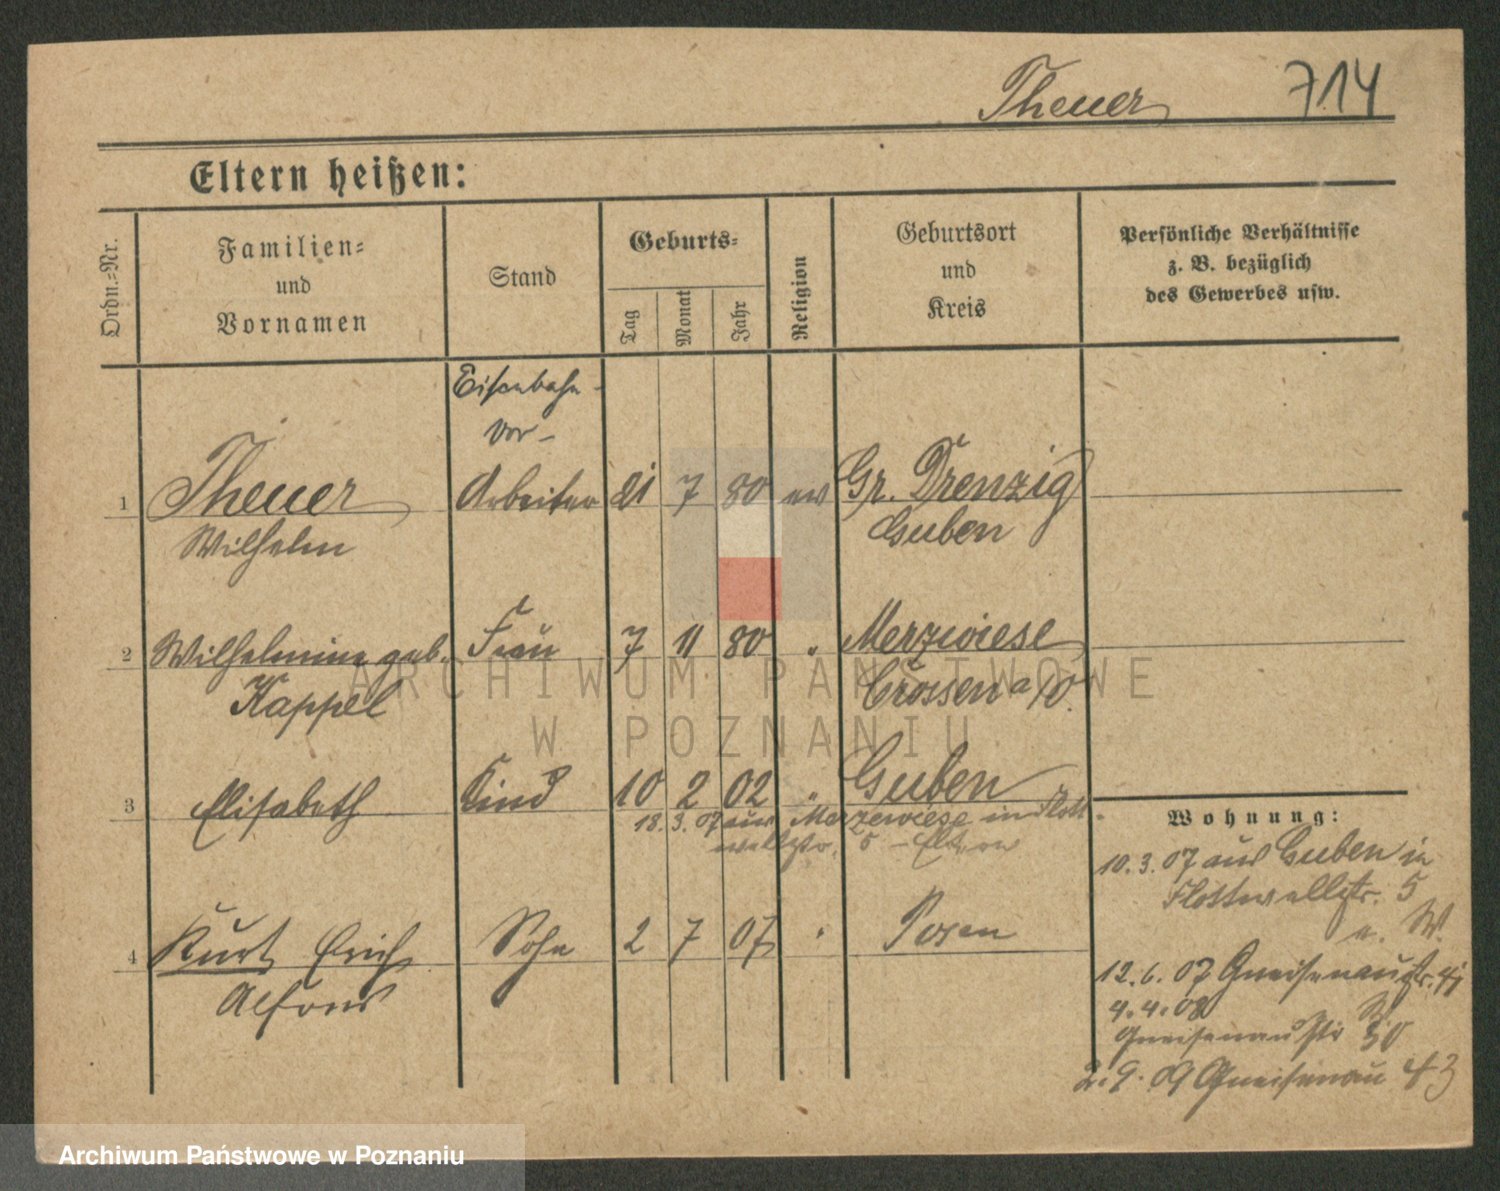 Theuer 714
Eltern heißen:
Ordn.-Nr.
Familien-
und
Vornamen
Stand
Geburts-
Tag
Monat
Jahr
Religion
Geburtsort
und
Kreis
Persönliche Verhältnisse
z. B. bezüglich
des Gewerbes usw.
Eisenbahn-
Vor-
1 Theuer Arbeiter 21 7 80 ev Gr. Drenzig
Wilhelm Guben
2 Wilhelmine geb. Frau 7 11 80 " Merzwiese
Kappel Crossen a/O.
3 Elisabeth Kind 10 2 02 " Guben
18. 3. 07 aus Merzwiese in Flott
wellstr. 5 - Eltern
4 Kurt Erich Sohn 2 7 07 " Posen
Alfons
Wohnung:
10. 3. 07 aus Guben in
Flottwellstr. 5
W.
12. 6. 07 Gneisenaustr.
4. 4. 08
Gneisenaustr 30
2. 9. 09 Gneisenau 43
ARCHIWUM PAŃSTWOWE
W POZNANIU
Archiwum Państwowe w Poznaniu